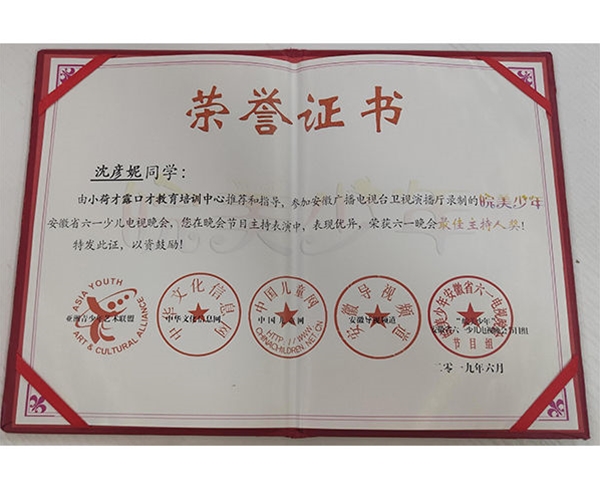 荣誉证书
沈彦妮同学：
由小荷才露口才教育培训中心推荐和指导，参加安徽广播电视台卫视演播厅录制的皖美少年
安徽省六一少儿电视晚会，您在晚会节目主持表演中，表现优异，荣获六一晚会最佳主持人奖！
特发此证，以资鼓励！
ASIA YOUTH
ART & CULTURAL ALLIANCE
亚洲青少年艺术联盟
中华文化信息网
中华文化信息网
中国儿童网
中国儿童网
HTTP://WWW.
CHINACHILDREN.NET.CN
安徽导视频道
安徽导视频道
节目组
二零一九年六月